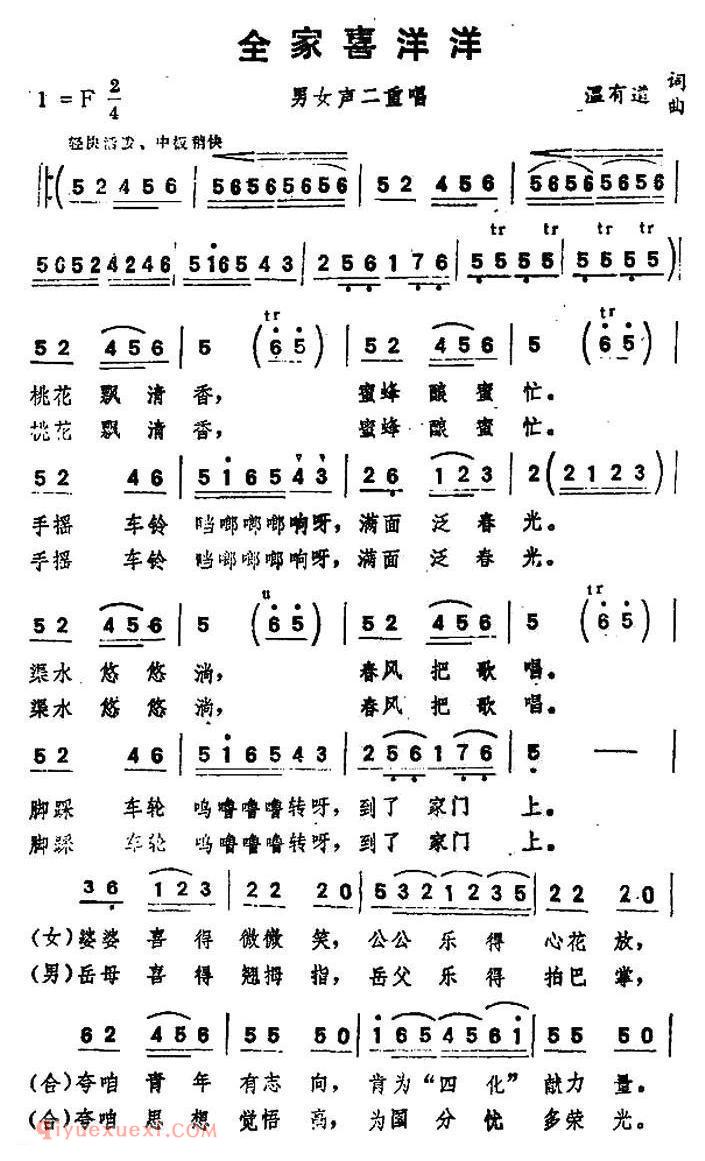 全家喜洋洋
1 = F 2/4 男女声二重唱 温有道 词曲
轻快活泼、中板稍快
5 2 4 5 6 | 56565656 | 5 2 4 5 6 | 56565656 |
5652 4246 | 51654 3 | 2 56 1 76 | 5 5 5 5 5 5 5 5 )|
5 2 4 5 6 | 5 ( 6 5 ) | 5 2 4 5 6 | 5 ( 6 5 ) |
桃花 飘 清 香， 蜜蜂 酿 蜜 忙。
桃花 飘 清 香， 蜜蜂 酿 蜜 忙。
5 2 4 6 | 5 1 6 5 4 3 | 2 6 1 2 3 | 2 ( 2 1 2 3 ) |
手摇 车铃 当啷啷啷响呀，满面 泛 春 光。
手摇 车铃 当啷啷啷响呀，满面 泛 春 光。
5 2 4 5 6 | 5 ( 6 5 ) | 5 2 4 5 6 | 5 ( 6 5 ) |
渠水 悠 悠 淌， 春风 把 歌 唱。
渠水 悠 悠 淌， 春风 把 歌 唱。
5 2 4 6 | 5 1 6 5 4 3 | 2 5 6 1 7 6 | 5 — |
脚踩 车轮 呜噜噜噜转呀，到了 家门 上。
脚踩 车轮 呜噜噜噜转呀，到了 家门 上。
3 6 1 2 3 | 2 2 2 0 | 5 3 2 1 2 3 5 | 2 2 2 0 |
(女)婆婆 喜 得 微微 笑，公公 乐 得 心花 放，
(男)岳母 喜 得 翘拇 指，岳父 乐 得 拍巴 掌，
6 2 4 5 6 | 5 5 5 0 | 1 6 5 4 5 6 1 | 5 5 5 0 |
(合)夸咱 青 年 有志 向，肯为“四 化”献力 量。
(合)夸咱 思 想 觉悟 高，为国 分 忧 多荣 光。
qiyuexuexi.com